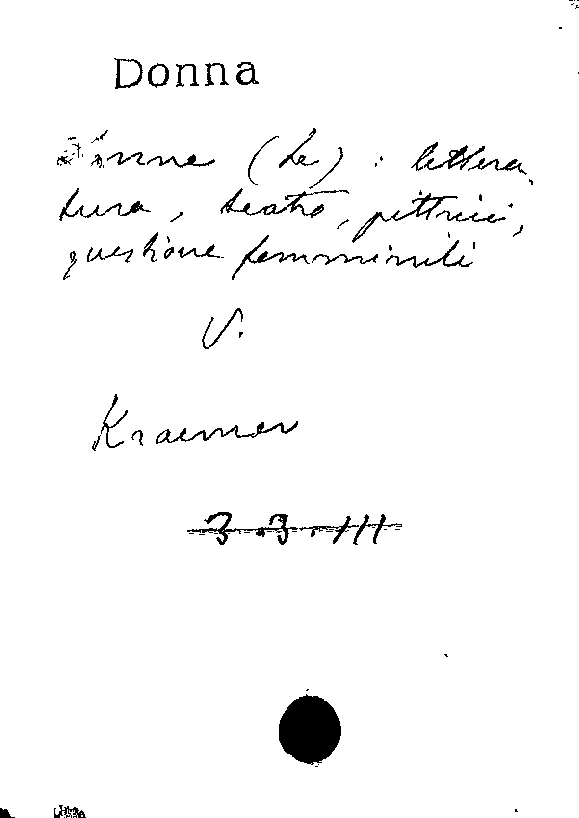 Donna
Donne (Le) : lettera
tura, teatro, pittrici,
questione femminili
V.
Kraemer
3.3.III